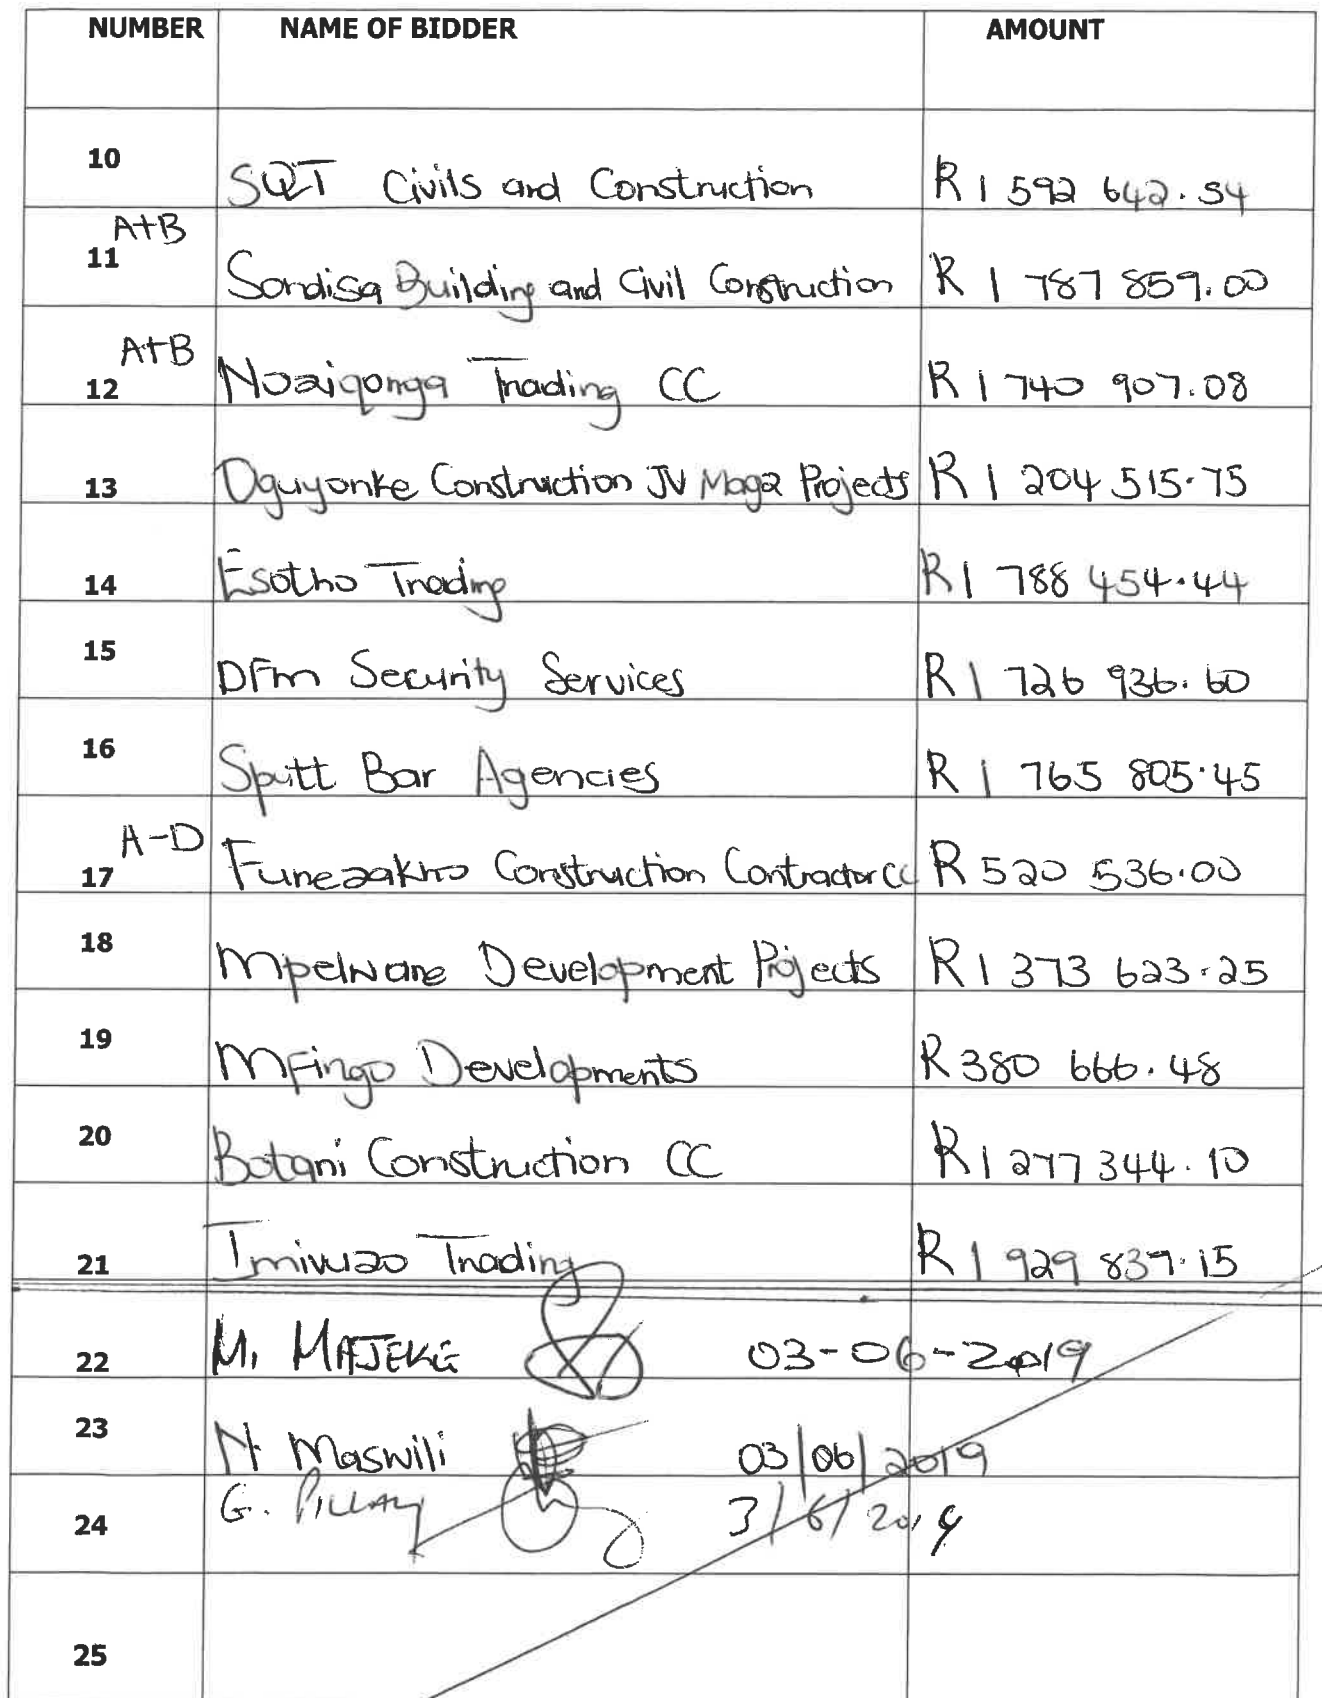 NUMBER NAME OF BIDDER AMOUNT
10 SQT Civils and Construction R 1 592 642.54
A+B
11 Sondisa Building and Civil Construction R 1 787 859.00
A+B
12 Noziqonga Trading CC R 1 740 907.08
13 Oguyonke Construction JV Magz Projects R 1 204 515.75
14 Esotho Trading R 1 788 454.44
15 DFM Security Services R 1 726 936.60
16 Sputt Bar Agencies R 1 765 805.45
A-D
17 Funezakho Construction Contractor CC R 520 536.00
18 Mpelwane Development Projects R 1 373 623.25
19 Mfingo Developments R 380 666.48
20 Botani Construction CC R 1 277 344.10
21 Imivuzo Trading R 1 929 837.15
22 M. MAJEKE 03-06-2019
23 N Maswili 03/06/2019
24 G. PILLAY 3/6/2019
25